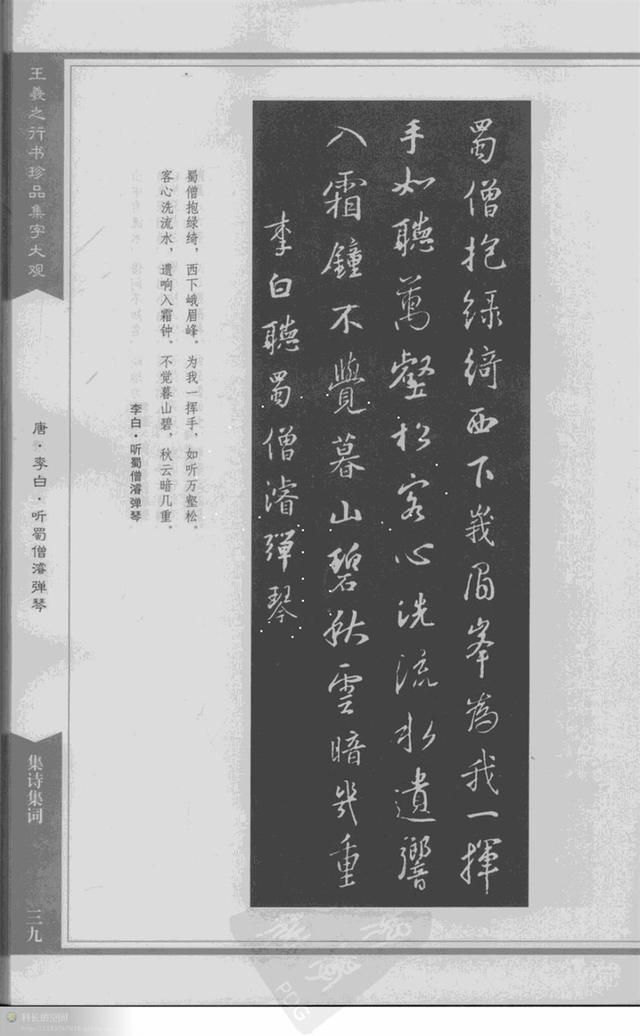 蜀僧抱绿绮西下峩眉峯為我一揮
手如聽萬壑松客心洗流水遺響
入霜鐘不覺暮山碧秋雲暗幾重
李白聽蜀僧濬彈琴
蜀僧抱绿绮，西下峨眉峰。为我一挥手，如听万壑松。
客心洗流水，遗响入霜钟。不觉暮山碧，秋云暗几重。
李白·听蜀僧濬弹琴
王羲之行书珍品集字大观
唐·李白·听蜀僧濬弹琴
集诗集词
三九
科长的空间
PCG